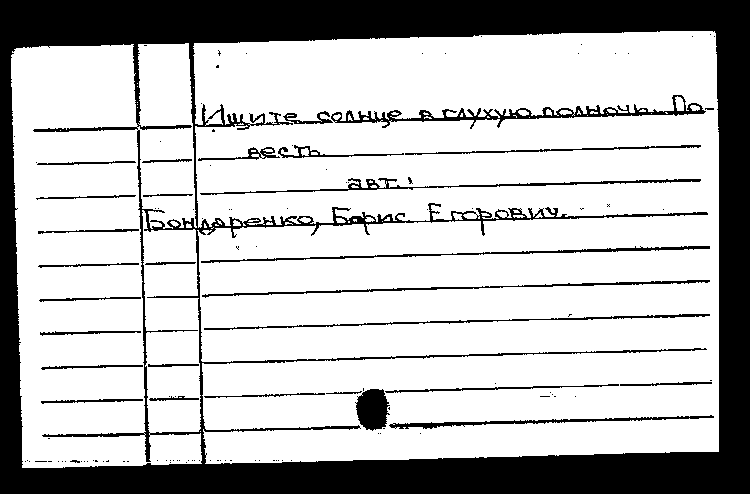 Ищите солнце в глухую полночь. По-
весть.
авт.:
Бондаренко, Борис Егорович.